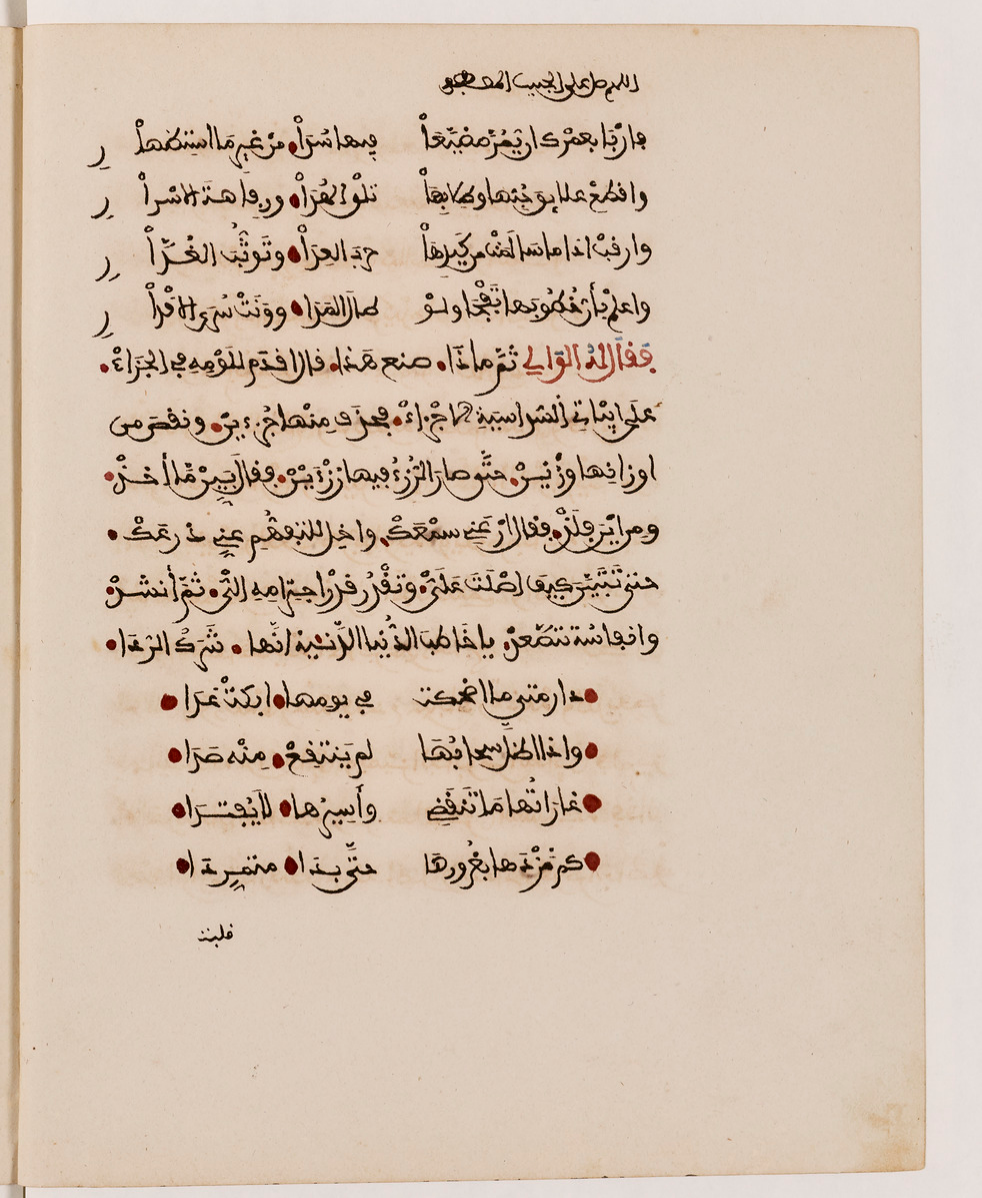 اللهم صل على الحبيب
فاربا بعمرك ان يمر مضيعا فيها سدا من غير ما استظها ر
واقطع علايق حبها وطلابها تلق الهدا ورفاهة الاسرا ر
وارقب اذا ما سالمت من كيدها حرب العدا وتوثب الغدا ر
واعلم بأن خطوبها تفجا ولو طال المدا وونت سرى الاقدا ر
فقال له الوالي ثم ماذا صنع هذا فقال اقدم للؤمه في الجزاء
على ابياتي السداسية الاجزاء فحذف منها جزءين ونقص من
اوزانها وزنين حتى صار الرزء فيها رزءين فقال بين ما أخذ
ومن اين فلذ فقال ارعني سمعك واخل للتفهم عني ذرعك
حتى تتبين كيف اصلت علي وتقدر قدر اجترامه الي ثم أنشد
وانفاسه تتصعد يا خاطب الدنيا الدنية انها شرك الردا
دار متى ما اضحكت في يومها ابكت غدا
واذا اظل سحابها لم ينتفع منه صدا
غاراتها ما تنقضي وأسيرها لا يفتدا
كم مزدها بغرورها حتى بدا متمردا
قلبت